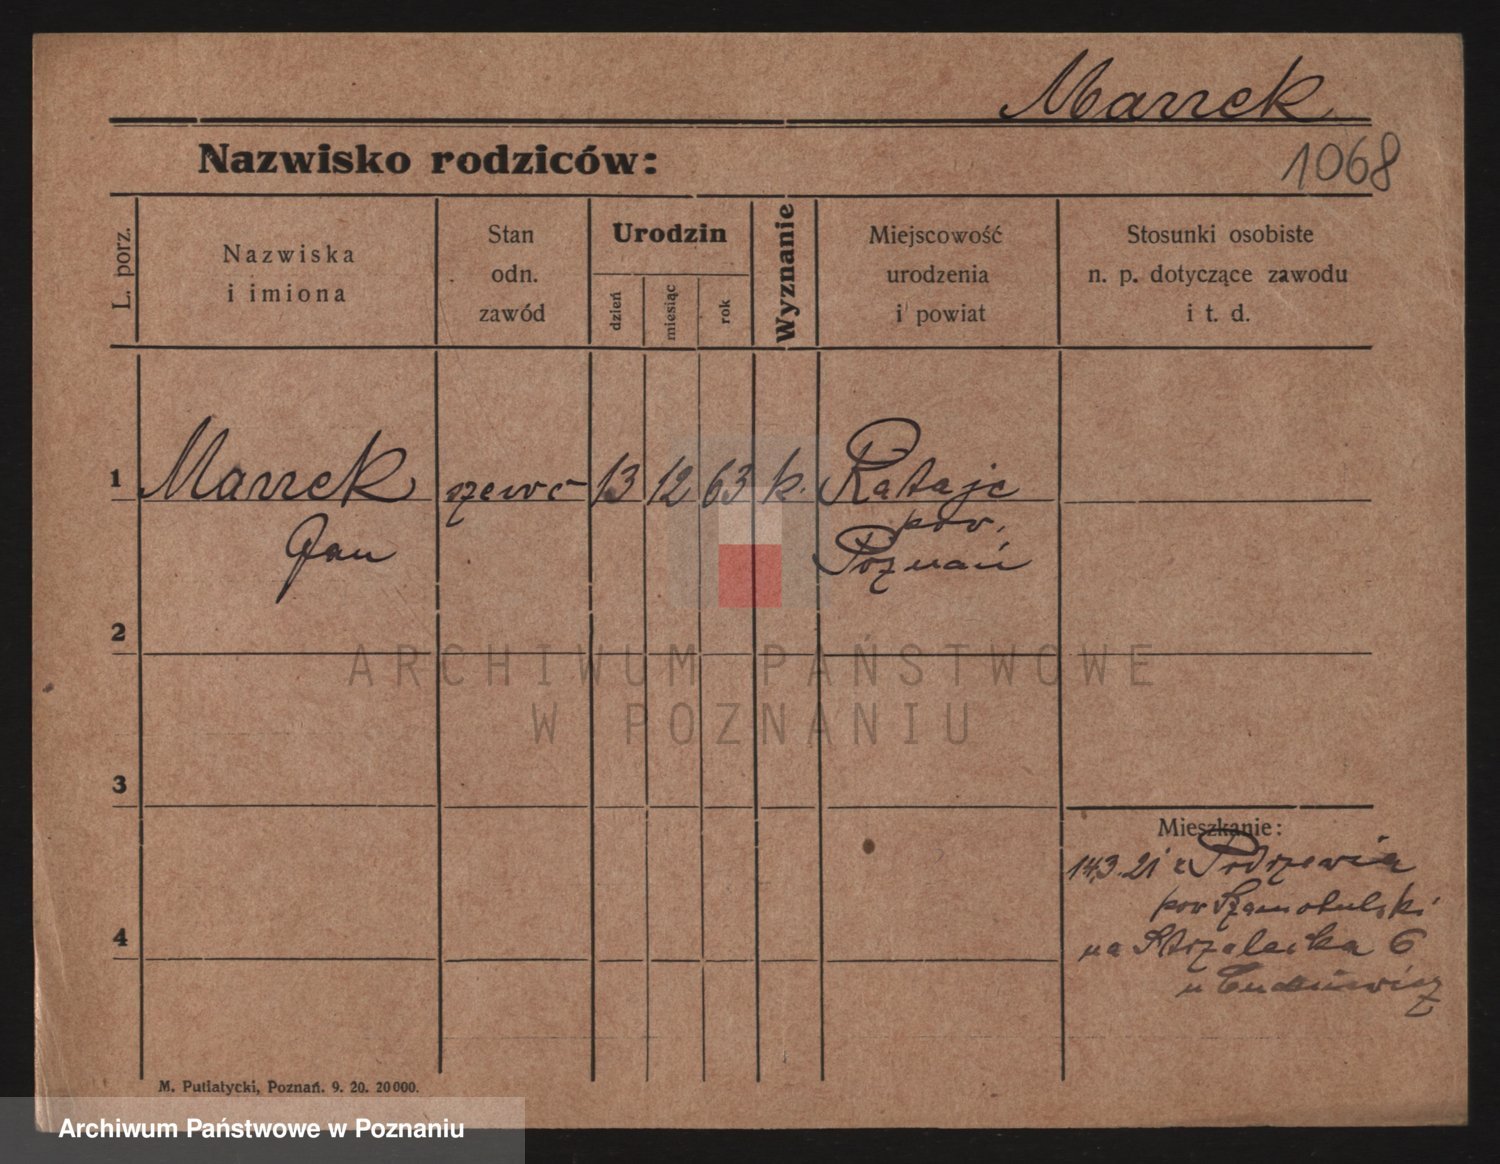 Manrek
Nazwisko rodziców:
1068
L. porz.
Nazwiska
i imiona
Stan
odn.
zawód
Urodzin
dzień
miesiąc
rok
Wyznanie
Miejscowość
urodzenia
i powiat
Stosunki osobiste
n. p. dotyczące zawodu
i t. d.
1 Manrek szewc 13 12 63 k. Rataje
Jan pow.
Poznań
2
3
4
Mieszkanie:
14.3.21 z Podrzewia
pow Szamotulski
na Strzalecka 6
u
M. Putiatycki, Poznań. 9. 20. 20 000.
ARCHIWUM PAŃSTWOWE
W POZNANIU
Archiwum Państwowe w Poznaniu